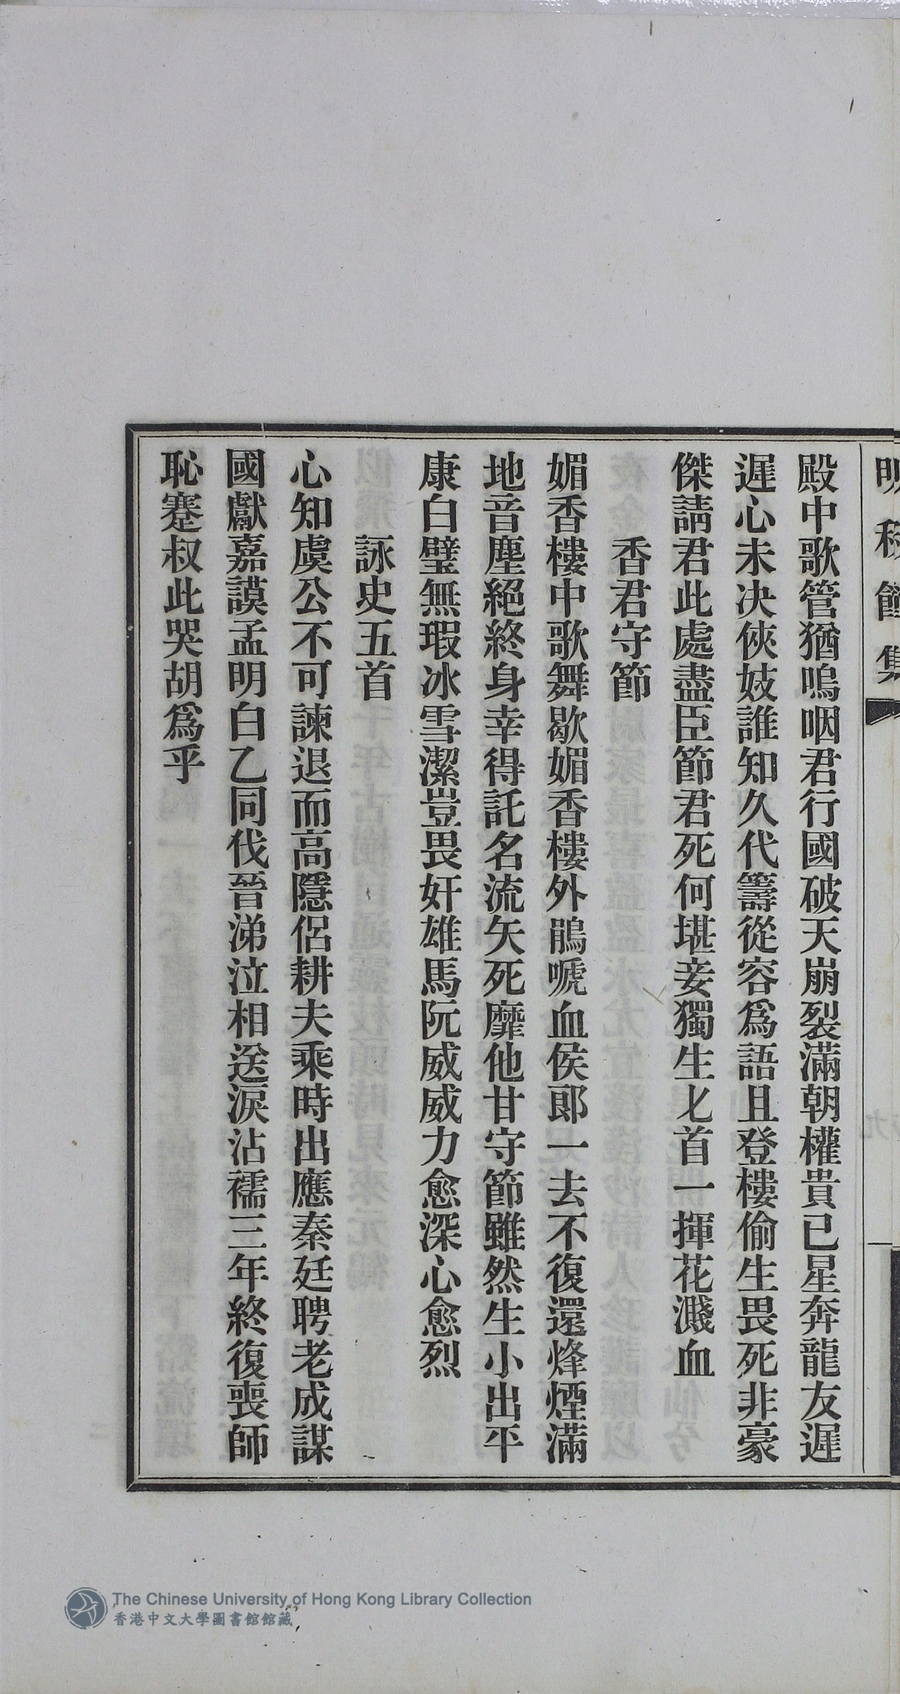 殿中歌管猶嗚咽君行國破天崩裂滿朝權貴已星奔龍友遲
遲心未決俠妓誰知久代籌從容爲語且登樓偷生畏死非豪
傑請君此處盡臣節君死何堪妾獨生匕首一揮花濺血
香君守節
媚香樓中歌舞歇媚香樓外鵑嗁血侯郎一去不復還烽煙滿
地音塵絕終身幸得託名流矢死靡他甘守節雖然生小出平
康白璧無瑕冰雪潔豈畏奸雄馬阮威威力愈深心愈烈
詠史五首
心知虞公不可諫退而高隱侶耕夫乘時出應秦廷聘老成謀
國獻嘉謨孟明白乙同伐晉涕泣相送淚沾襦三年終復喪師
恥蹇叔此哭胡爲乎
The Chinese University of Hong Kong Library Collection
香港中文大學圖書館館藏